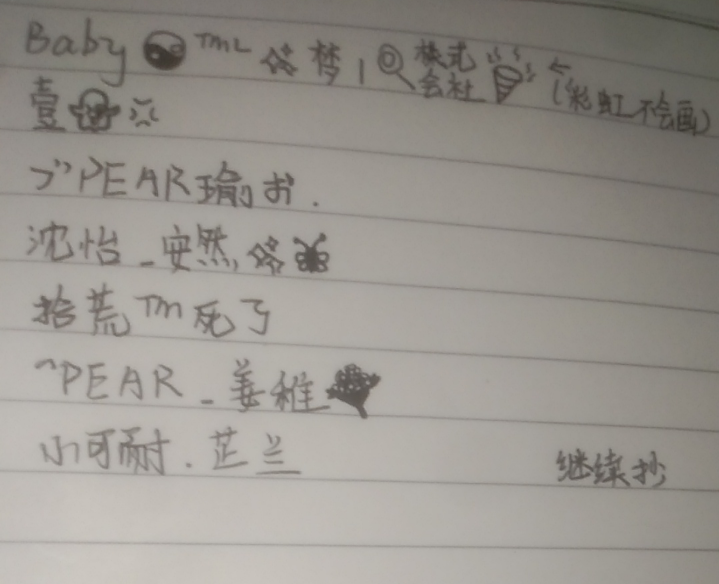 Baby ☯ TML 梦 | 株式会社 ←(彩虹不会画)
壹
ブPEAR瑜书.
沈怡_安然
拾荒TM死了
PEAR_姜稚
小可耐.芷兰 继续抄